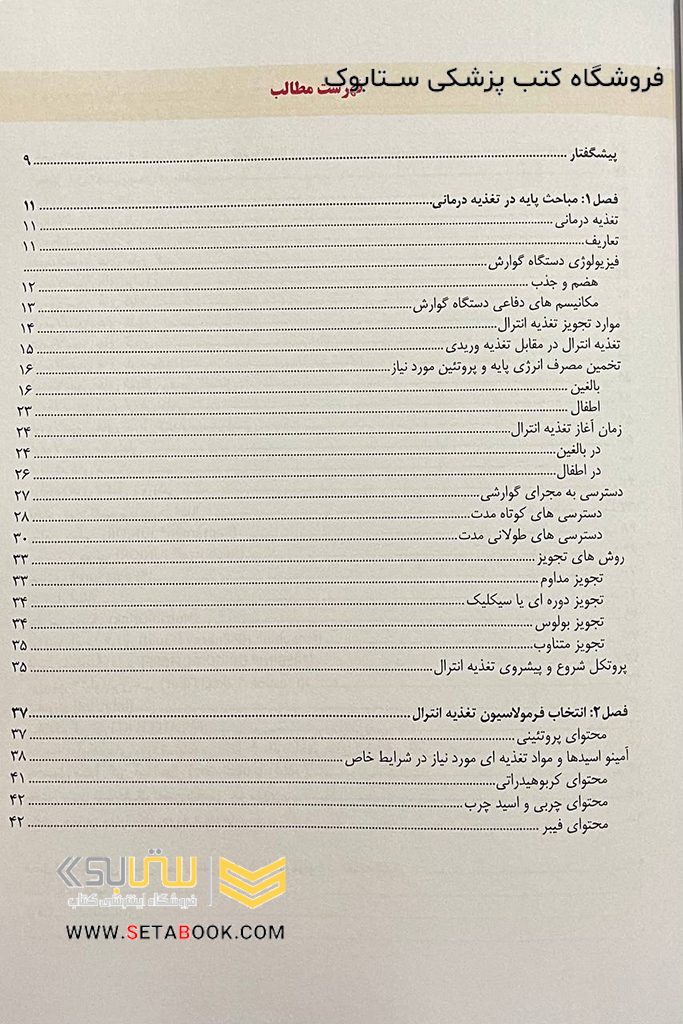 فروشگاه کتب پزشکی ستابوک
فهرست مطالب
پیشگفتار ۹
فصل ۱: مباحث پایه در تغذیه درمانی ۱۱
تغذیه درمانی ۱۱
تعاریف ۱۱
فیزیولوژی دستگاه گوارش
هضم و جذب ۱۲
مکانیسم های دفاعی دستگاه گوارش ۱۳
موارد تجویز تغذیه انترال ۱۴
تغذیه انترال در مقابل تغذیه وریدی ۱۵
تخمین مصرف انرژی پایه و پروتئین مورد نیاز ۱۶
بالغین ۱۶
اطفال ۲۳
زمان آغاز تغذیه انترال ۲۴
در بالغین ۲۴
در اطفال ۲۶
دسترسی به مجرای گوارشی ۲۷
دسترسی های کوتاه مدت ۲۸
دسترسی های طولانی مدت ۳۰
روش های تجویز ۳۳
تجویز مداوم ۳۳
تجویز دوره ای یا سیکلیک ۳۴
تجویز بولوس ۳۴
تجویز متناوب ۳۵
پروتکل شروع و پیشروی تغذیه انترال ۳۵
فصل ۲: انتخاب فرمولاسیون تغذیه انترال ۳۷
محتوای پروتئینی ۳۷
آمینو اسیدها و مواد تغذیه ای مورد نیاز در شرایط خاص ۳۸
محتوای کربوهیدراتی ۴۱
محتوای چربی و اسید چرب ۴۲
محتوای فیبر ۴۲
ستابوک
فروشگاه اینترنتی کتاب
WWW.SETABOOK.COM